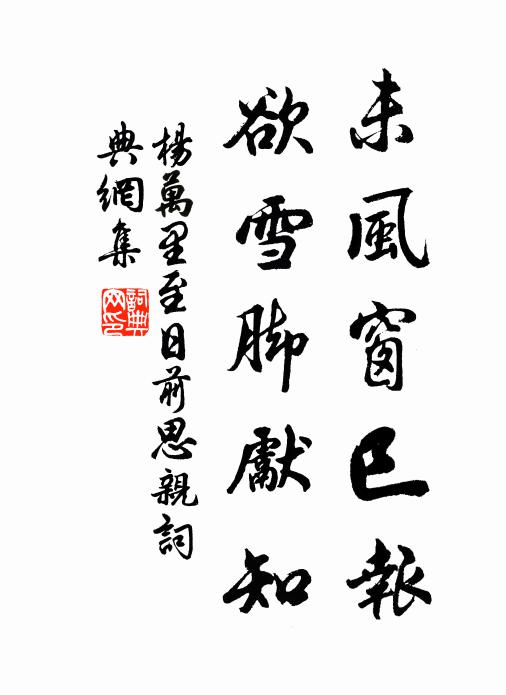 未風窗已報
欲雪脚獻知
楊萬里至日前思親詞
典網集
詞典
网印